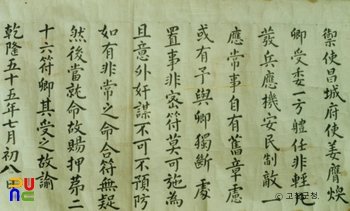 禦使昌城府使姜膺煥
卿受委一方體任非輕凡
發兵應機安民制敵一
應常事自有舊章慮
或有予與卿獨斷處
置事非密符莫可施爲
且意外奸謀不可不預防
如有非常之命合符無疑
然後當就命故賜押苐二
十六符卿其受之故諭
乾隆五十五年七月初八日
ⓒ고창군청.